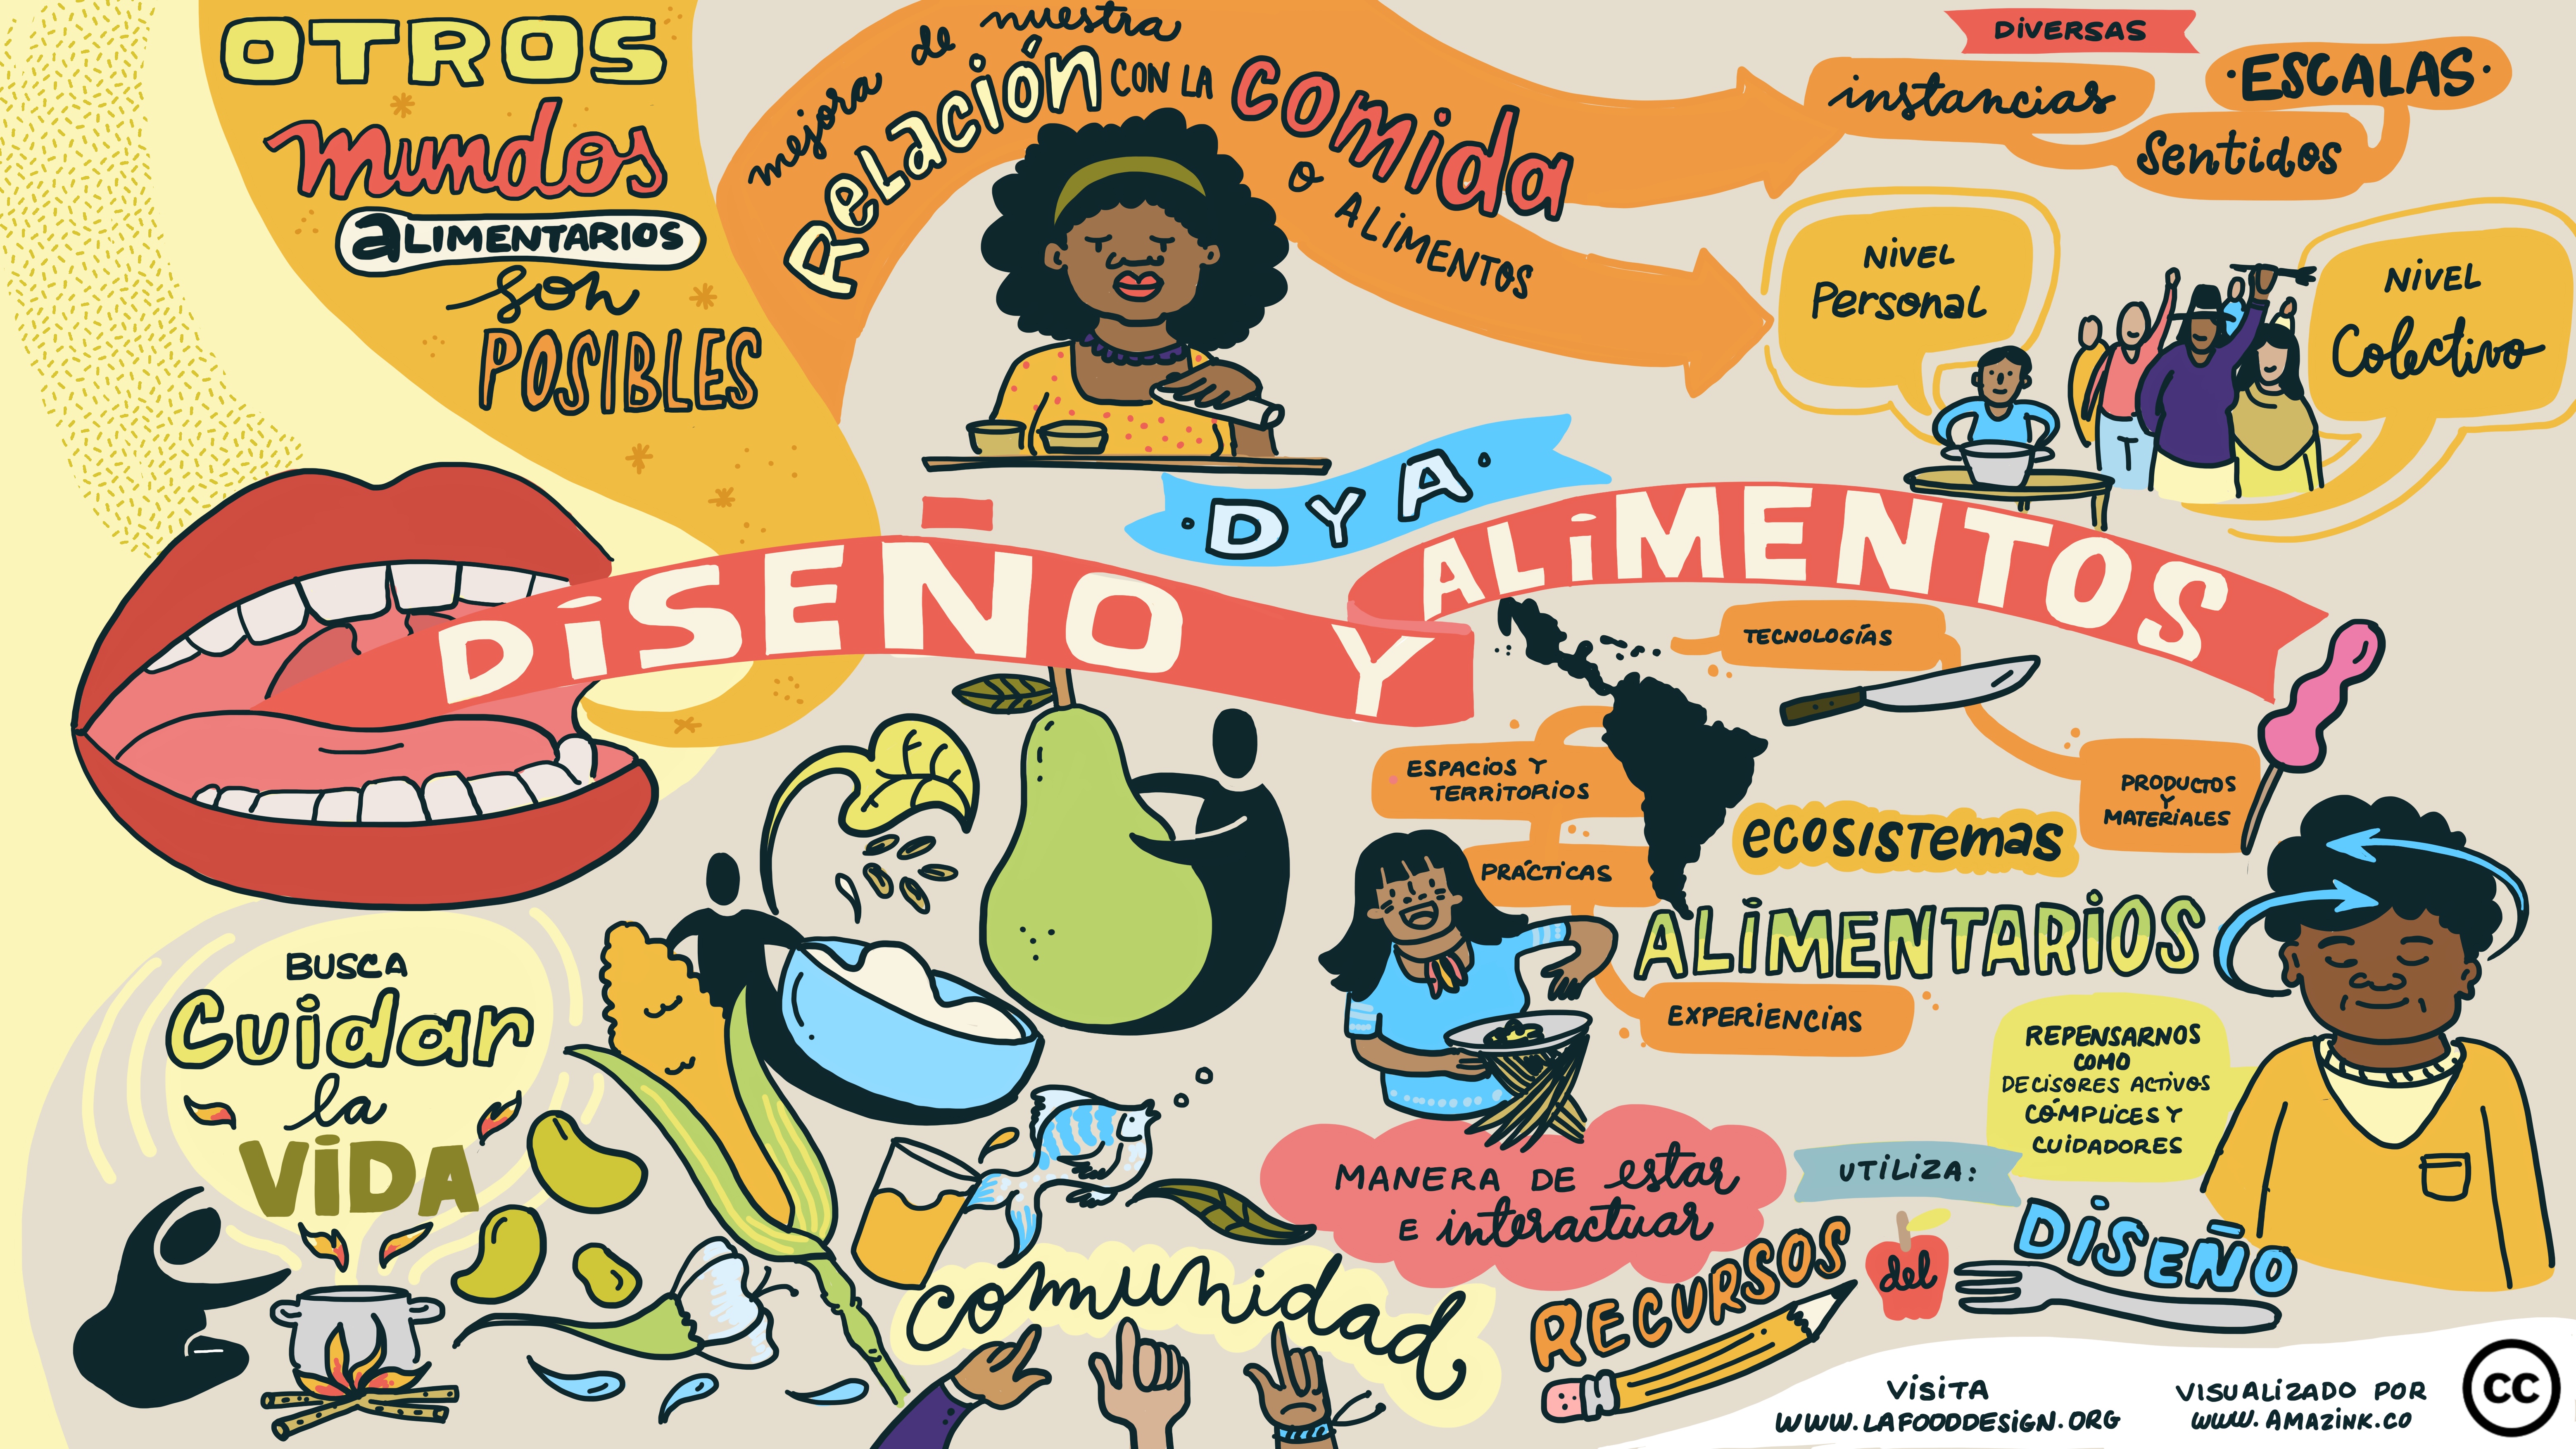 OTROS
mundos
aLIMENTARIOS
son
POSIBLES
mejora de nuestra
Relación CON LA comida
o ALIMENTOS
DIVERSAS
instancias
·ESCALAS·
Sentidos
NIVEL
Personal
NIVEL
Colectivo
·DYA·
DISEÑO Y ALIMENTOS
TECNOLOGÍAS
ESPACIOS Y
TERRITORIOS
PRODUCTOS
Y
MATERIALES
PRÁCTICAS
ecosistemas
ALIMENTARIOS
EXPERIENCIAS
BUSCA
Cuidar
la
VIDA
REPENSARNOS
COMO
DECISORES ACTIVOS
CÓMPLICES Y
CUIDADORES
MANERA DE estar
E interactuar
UTILIZA:
RECURSOS
del
DISEÑO
comunidad
VISITA
WWW.LAFOODDESIGN.ORG
VISUALIZADO POR
WWW.AMAZINK.CO
CC